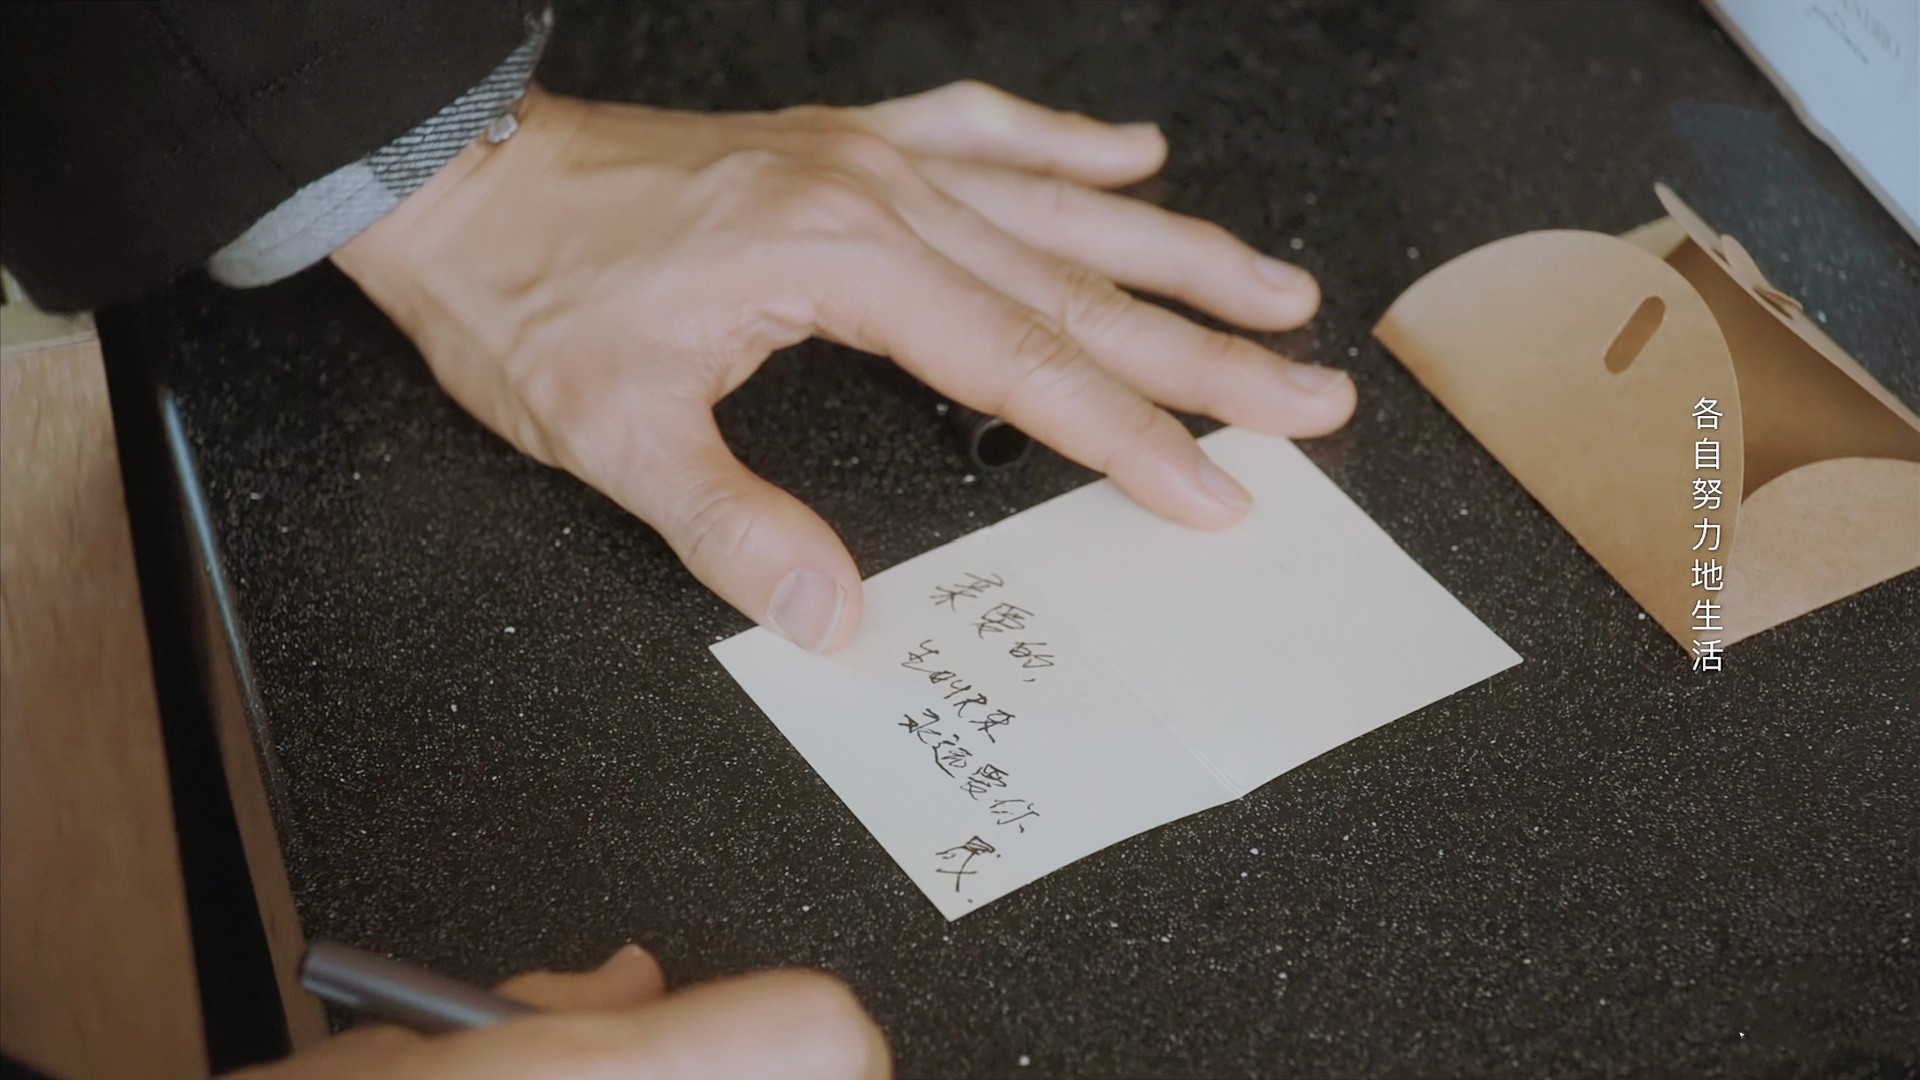 亲爱的,
生日快乐
永远爱你
晟.
各自努力地生活